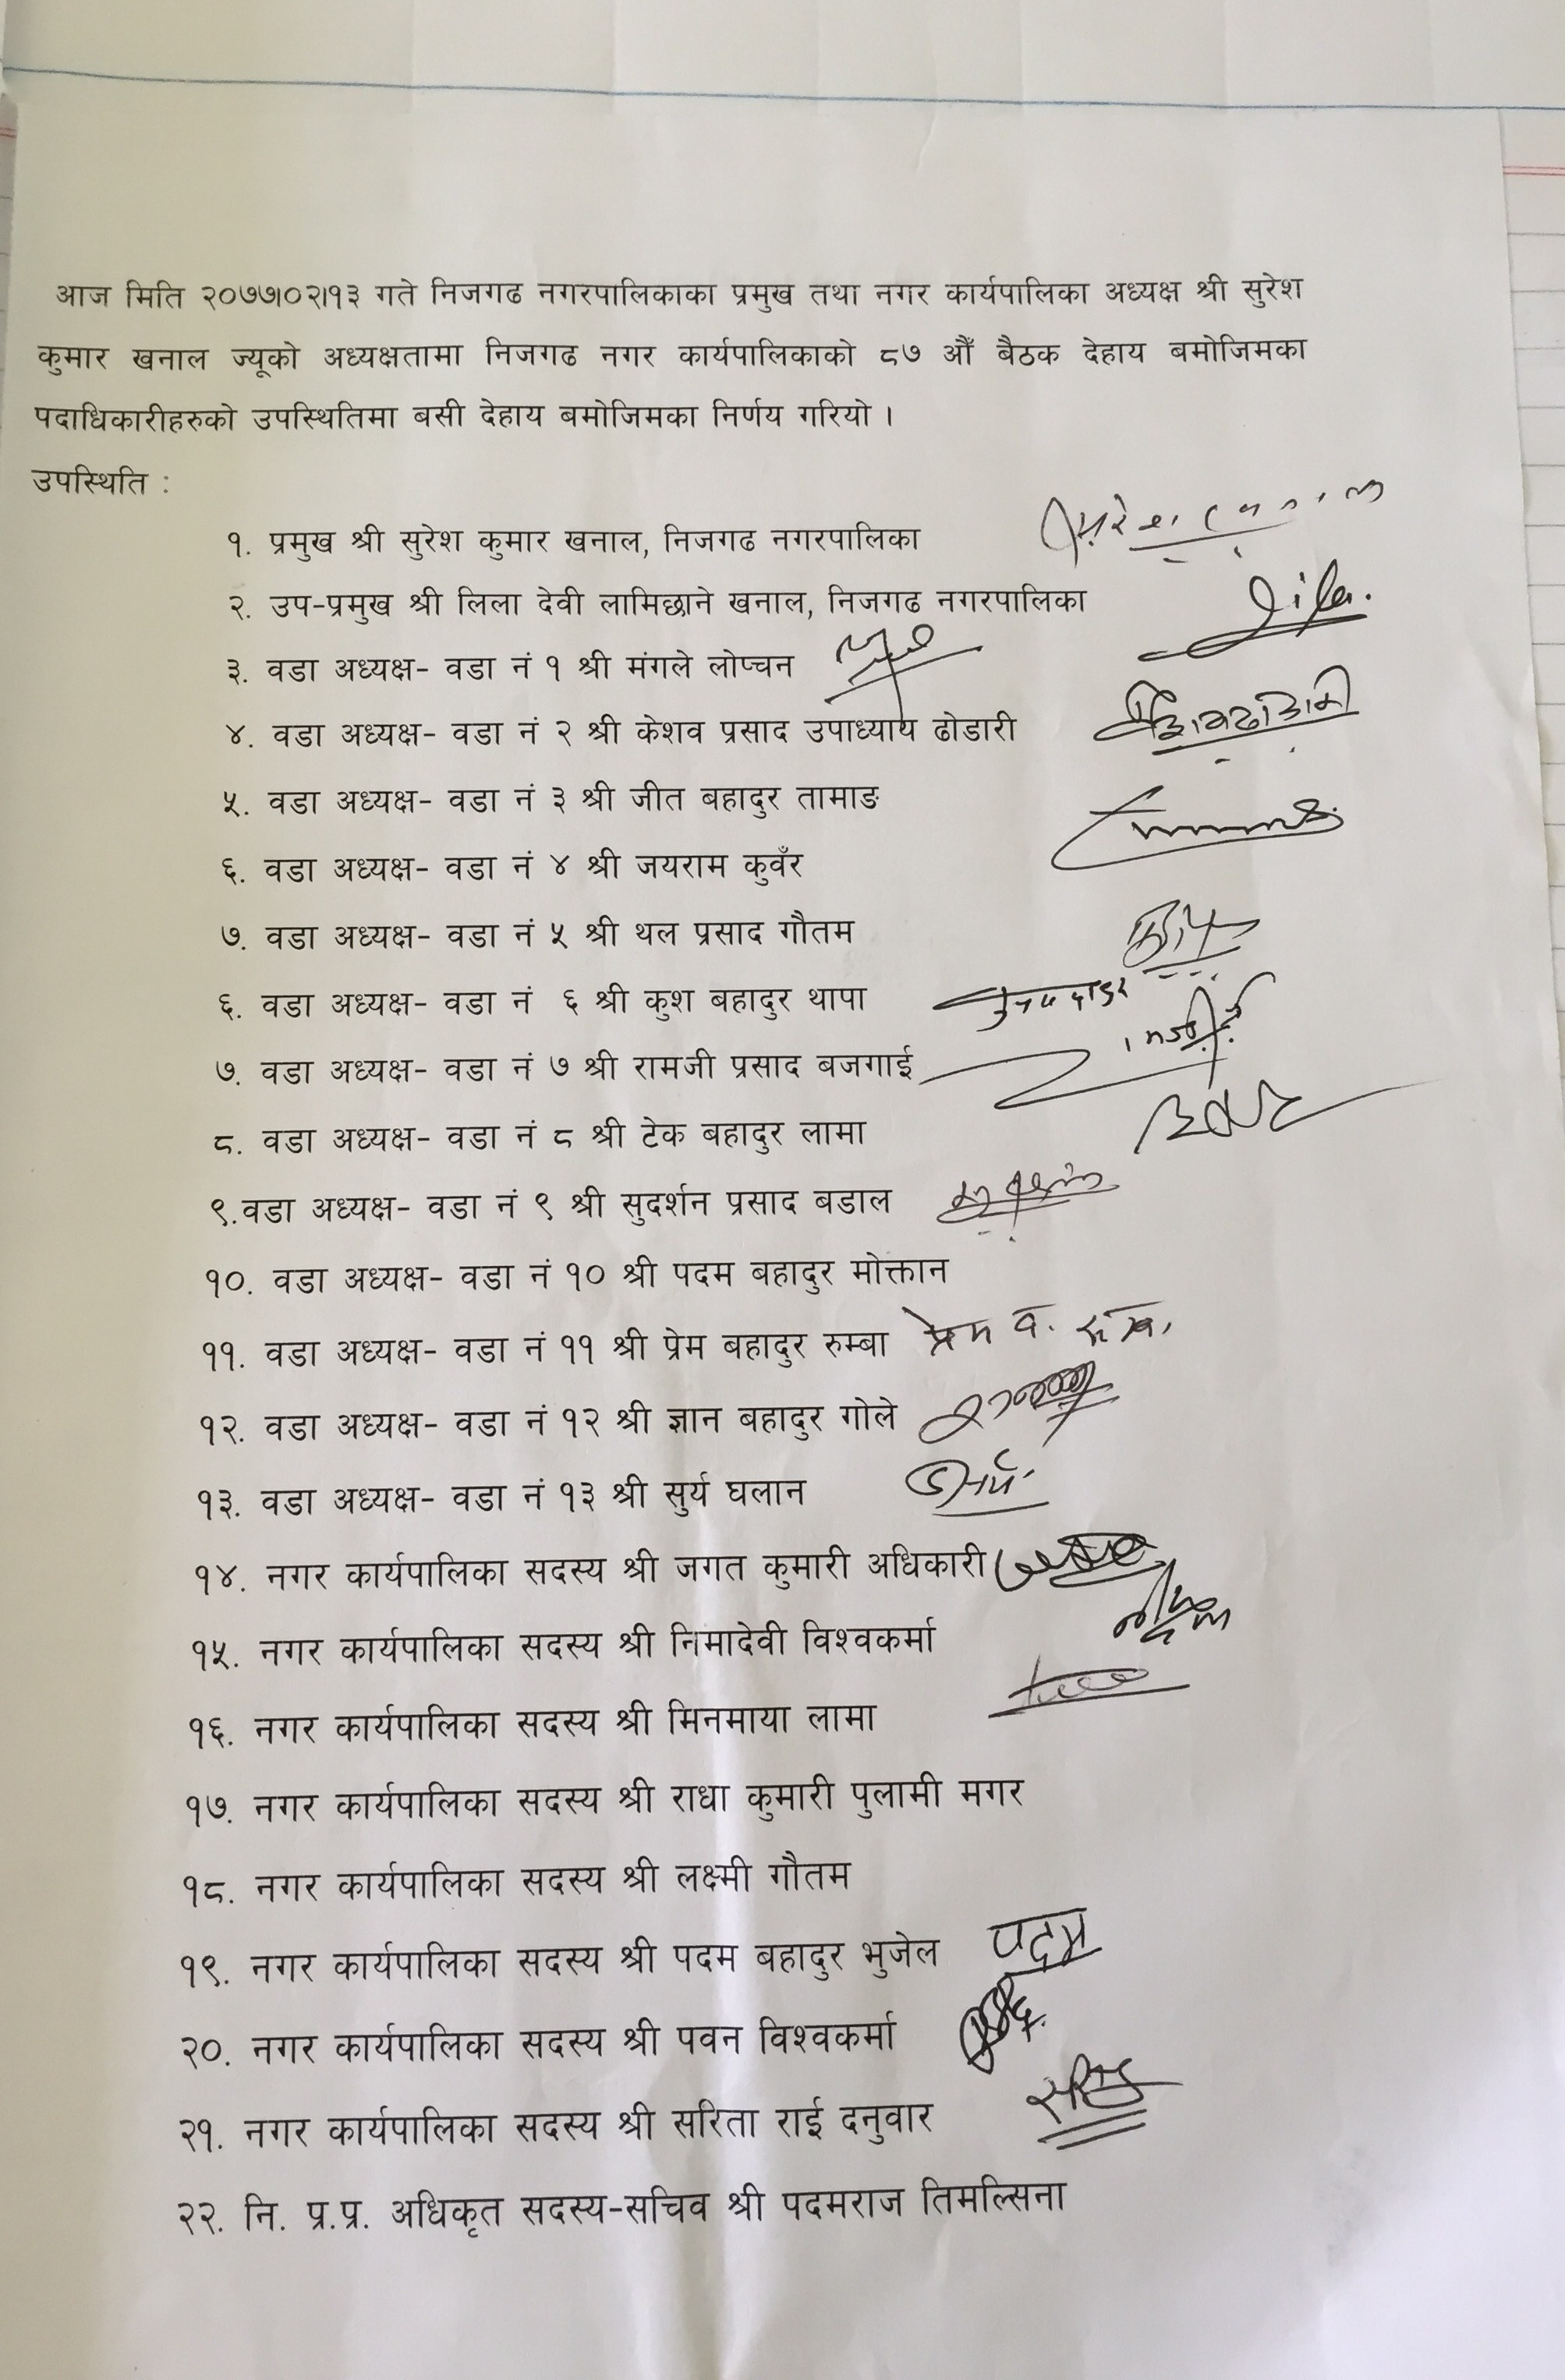 आज मिति २०७७।०२।१३ गते निजगढ नगरपालिकाका प्रमुख तथा नगर कार्यपालिका अध्यक्ष श्री सुरेश
कुमार खनाल ज्यूको अध्यक्षतामा निजगढ नगर कार्यपालिकाको ८७ औँ बैठक देहाय बमोजिमका
पदाधिकारीहरुको उपस्थितिमा बसी देहाय बमोजिमका निर्णय गरियो ।
उपस्थिति :
१. प्रमुख श्री सुरेश कुमार खनाल, निजगढ नगरपालिका
२. उप-प्रमुख श्री लिला देवी लामिछाने खनाल, निजगढ नगरपालिका
३. वडा अध्यक्ष- वडा नं १ श्री मंगले लोप्चन
४. वडा अध्यक्ष- वडा नं २ श्री केशव प्रसाद उपाध्याय ढोडारी
५. वडा अध्यक्ष- वडा नं ३ श्री जीत बहादुर तामाङ
६. वडा अध्यक्ष- वडा नं ४ श्री जयराम कुवँर
७. वडा अध्यक्ष- वडा नं ५ श्री थल प्रसाद गौतम
६. वडा अध्यक्ष- वडा नं ६ श्री कुश बहादुर थापा
७. वडा अध्यक्ष- वडा नं ७ श्री रामजी प्रसाद बजगाई
८. वडा अध्यक्ष- वडा नं ८ श्री टेक बहादुर लामा
९.वडा अध्यक्ष- वडा नं ९ श्री सुदर्शन प्रसाद बडाल
१०. वडा अध्यक्ष- वडा नं १० श्री पदम बहादुर मोक्तान
११. वडा अध्यक्ष- वडा नं ११ श्री प्रेम बहादुर रुम्बा प्रेम व.
१२. वडा अध्यक्ष- वडा नं १२ श्री ज्ञान बहादुर गोले
१३. वडा अध्यक्ष- वडा नं १३ श्री सुर्य घलान
१४. नगर कार्यपालिका सदस्य श्री जगत कुमारी अधिकारी
१५. नगर कार्यपालिका सदस्य श्री निमादेवी विश्वकर्मा
१६. नगर कार्यपालिका सदस्य श्री मिनमाया लामा
१७. नगर कार्यपालिका सदस्य श्री राधा कुमारी पुलामी मगर
१८. नगर कार्यपालिका सदस्य श्री लक्ष्मी गौतम
१९. नगर कार्यपालिका सदस्य श्री पदम बहादुर भुजेल पदम
२०. नगर कार्यपालिका सदस्य श्री पवन विश्वकर्मा
२१. नगर कार्यपालिका सदस्य श्री सरिता राई दनुवार
२२. नि. प्र.प्र. अधिकृत सदस्य-सचिव श्री पदमराज तिमल्सिना